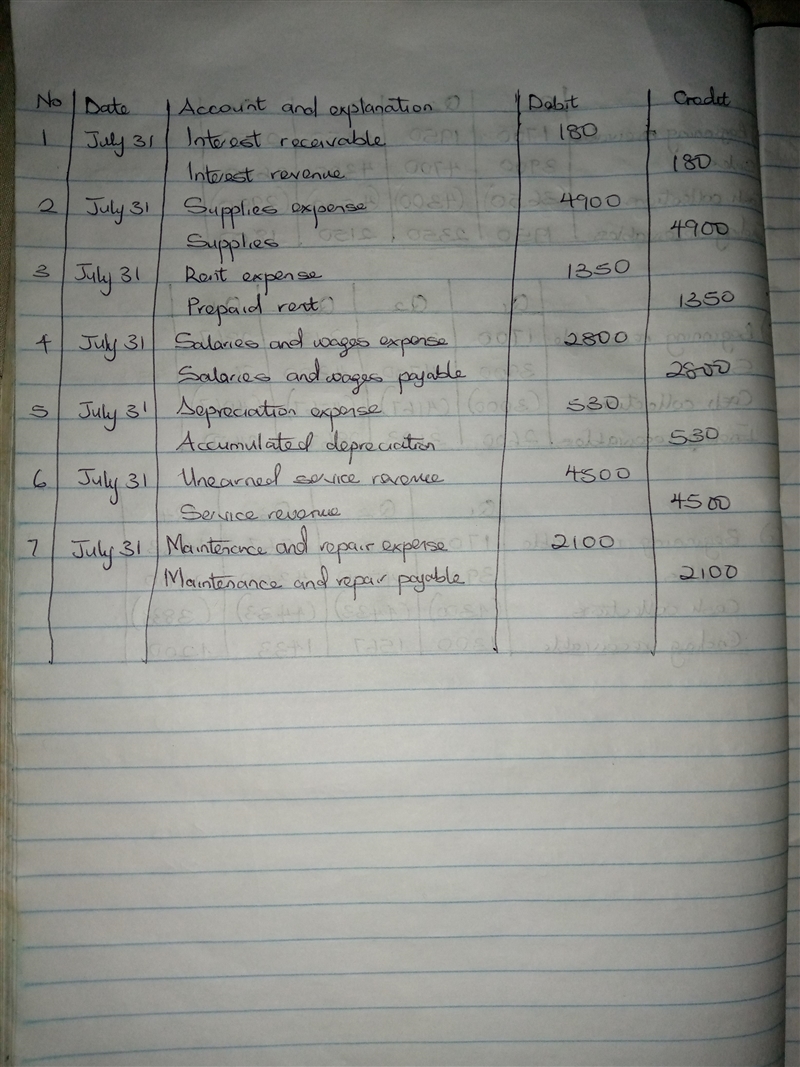 No Date Account and explanation Debit Credit
1 July 31 Interest receivable 180
Interest revenue 180
2 July 31 Supplies expense 4900
Supplies 4900
3 July 31 Rent expense 1350
Prepaid rent 1350
4 July 31 Salaries and wages expense 2800
Salaries and wages payable 2800
5 July 31 Depreciation expense 530
Accumulated depreciation 530
6 July 31 Unearned service revenue 4500
Service revenue 4500
7 July 31 Maintenance and repair expense 2100
Maintenance and repair payable 2100